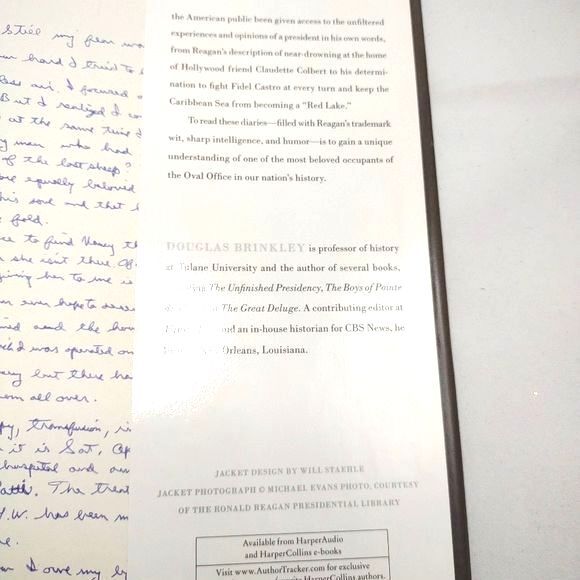 still my fear wa
hard I tried to
air. I focused o
But I realized I co
at the same time I
men who had
of the lost sheep?
equally beloved
his soul and that h
fold.
to find Nancy th
she isn't there.
giving her to me is
ever hope to
and the
I was operated on
but there ha
em all over.
transfusion, i
it is Sat,
hospital and
The treat
.W. has been m
e.
I owe my
the American public been given access to the unfiltered
experiences and opinions of a president in his own words,
from Reagan's description of near-drowning at the home
of Hollywood friend Claudette Colbert to his determi-
nation to fight Fidel Castro at every turn and keep the
Caribbean Sea from becoming a "Red Lake."
To read these diaries—filled with Reagan's trademark
wit, sharp intelligence, and humor—is to gain a unique
understanding of one of the most beloved occupants of
the Oval Office in our nation's history.
DOUGLAS BRINKLEY is professor of history
at Tulane University and the author of several books,
The Unfinished Presidency, The Boys of Pointe
The Great Deluge. A contributing editor at
and an in-house historian for CBS News, he
Orleans, Louisiana.
JACKET DESIGN BY WILL STAEHLE
JACKET PHOTOGRAPH © MICHAEL EVANS PHOTO, COURTESY
OF THE RONALD REAGAN PRESIDENTIAL LIBRARY
Available from HarperAudio
and HarperCollins e-books
Visit www.AuthorTracker.com for exclusive
HarperCollins authors.